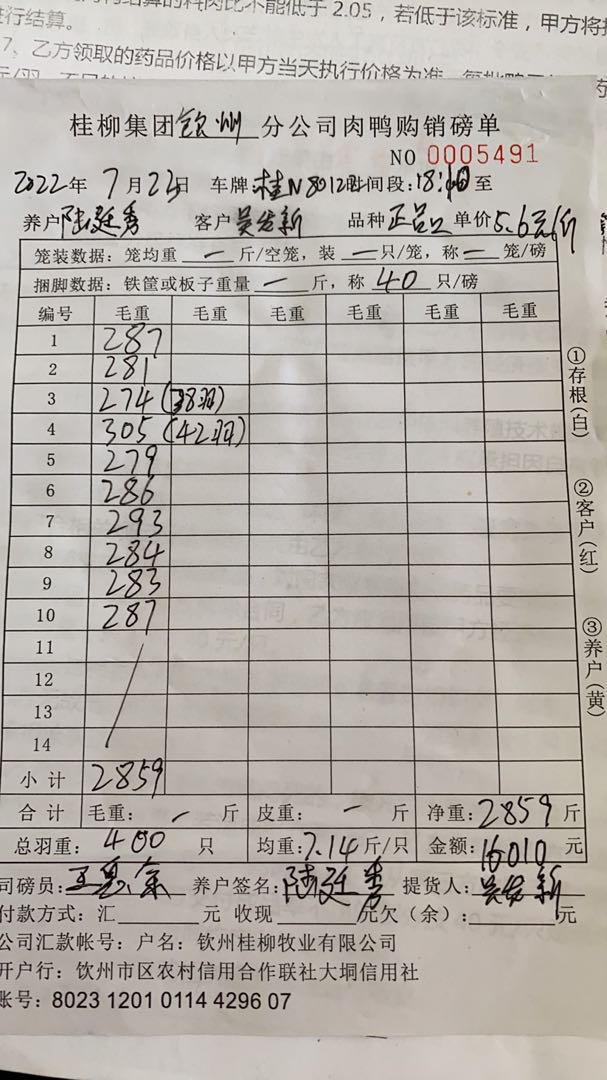 结算的料肉比不能低于2.05，若低于该标准，甲方将
进行结算。
7、乙方领取的药品价格以甲方当天执行价格为准
桂柳集团钦州分公司肉鸭购销磅单
NO 0005491
2022年 7月23日 车牌:桂N8012 时间段:18:10至
养户陆廷秀 客户吴发新 品种正品 单价5.6元/斤
笼装数据: 笼均重 — 斤/空笼, 装 — 只/笼, 称 — 笼/磅
捆脚数据: 铁筐或板子重量 — 斤, 称 40 只/磅
编号 毛重 毛重 毛重 毛重 毛重 毛重
1 287
2 281
3 274 (38羽)
4 305 (42羽)
5 279
6 286
7 293
8 284
9 283
10 287
11
12
13
14
小计 2859
合计 毛重: — 斤 皮重: — 斤 净重: 2859 斤
总羽重: 400 只 均重: 7.14斤/只 金额: 16010 元
司磅员: 养户签名: 陆廷秀 提货人: 吴发新
付款方式: 汇 元 收现 元欠（余）: 元
公司汇款帐号: 户名: 钦州桂柳牧业有限公司
开户行: 钦州市区农村信用合作联社大垌信用社
账号: 8023 1201 0114 4296 07
①存根(白)
②客户(红)
③养户(黄)